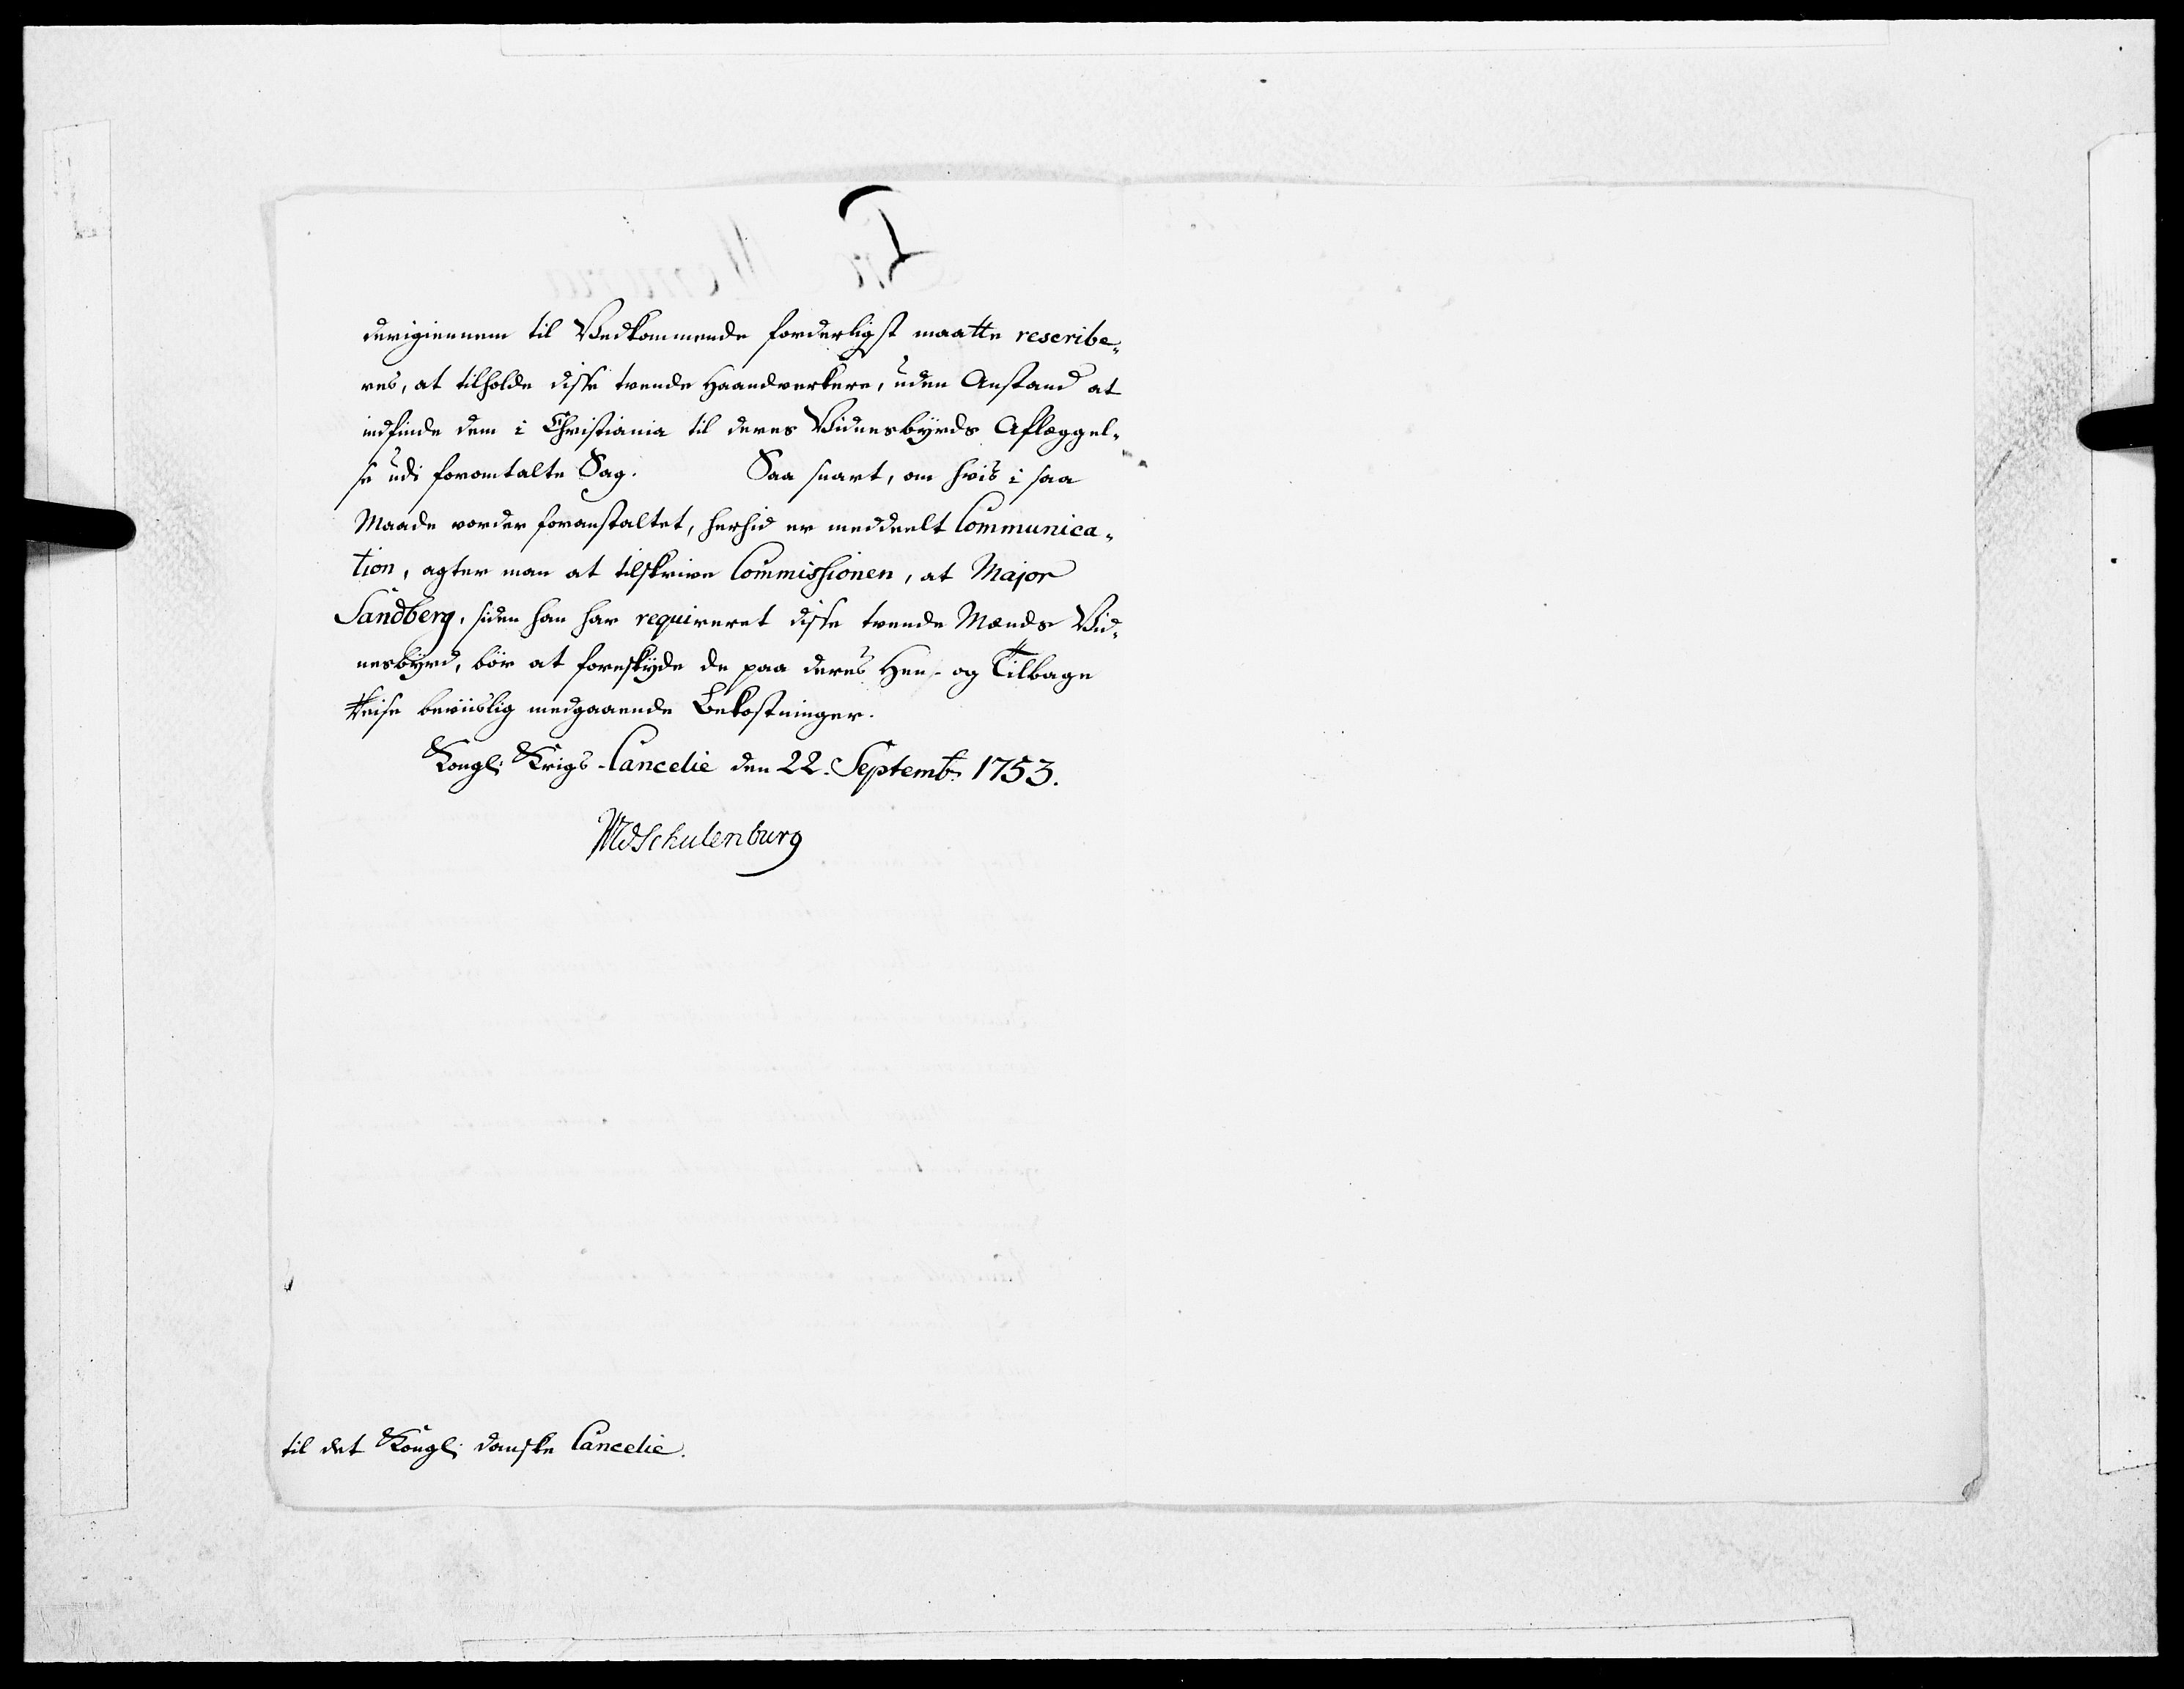 derigiennem til Vedkommende forderligst maatte rescribe-
res, at tilholde disse tvende Haandverkere, uden Anstand at
indfinde dem i Christiania til deres Vidnesbyrds Aflæggel-
se udi foromtalte Sag. Saa snart, om hvis i saa
Maade vorder foranstaltet, herhid er meddeelt Communica-
tion, agter man at tilskrive Commissionen, at Major
Sandberg, siden han har requireret disse tvende Mænds Vid-
nesbyrd, bør at foreskyde de paa deres Hen- og Tilbage
Reise beviislig medgaaende Bekostninger.
Kongl: Krigs-Cancelie den 22. Septembr: 1753.
WvSchulenburg
til det Kongl: danske Cancelie.